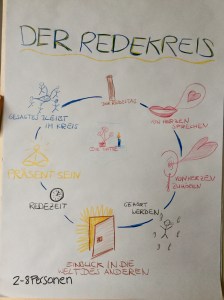 DER REDEKREIS
GESAGTES BLEIBT
IM KREIS
VON HERZEN
SPRECHEN
DIE MITTE
PRÄSENT SEIN
VON HERZEN
ZUHÖREN
REDEZEIT
GEHÖRT
WERDEN
EINBLICK IN DIE
WELT DES ANDEREN
2-8 Personen